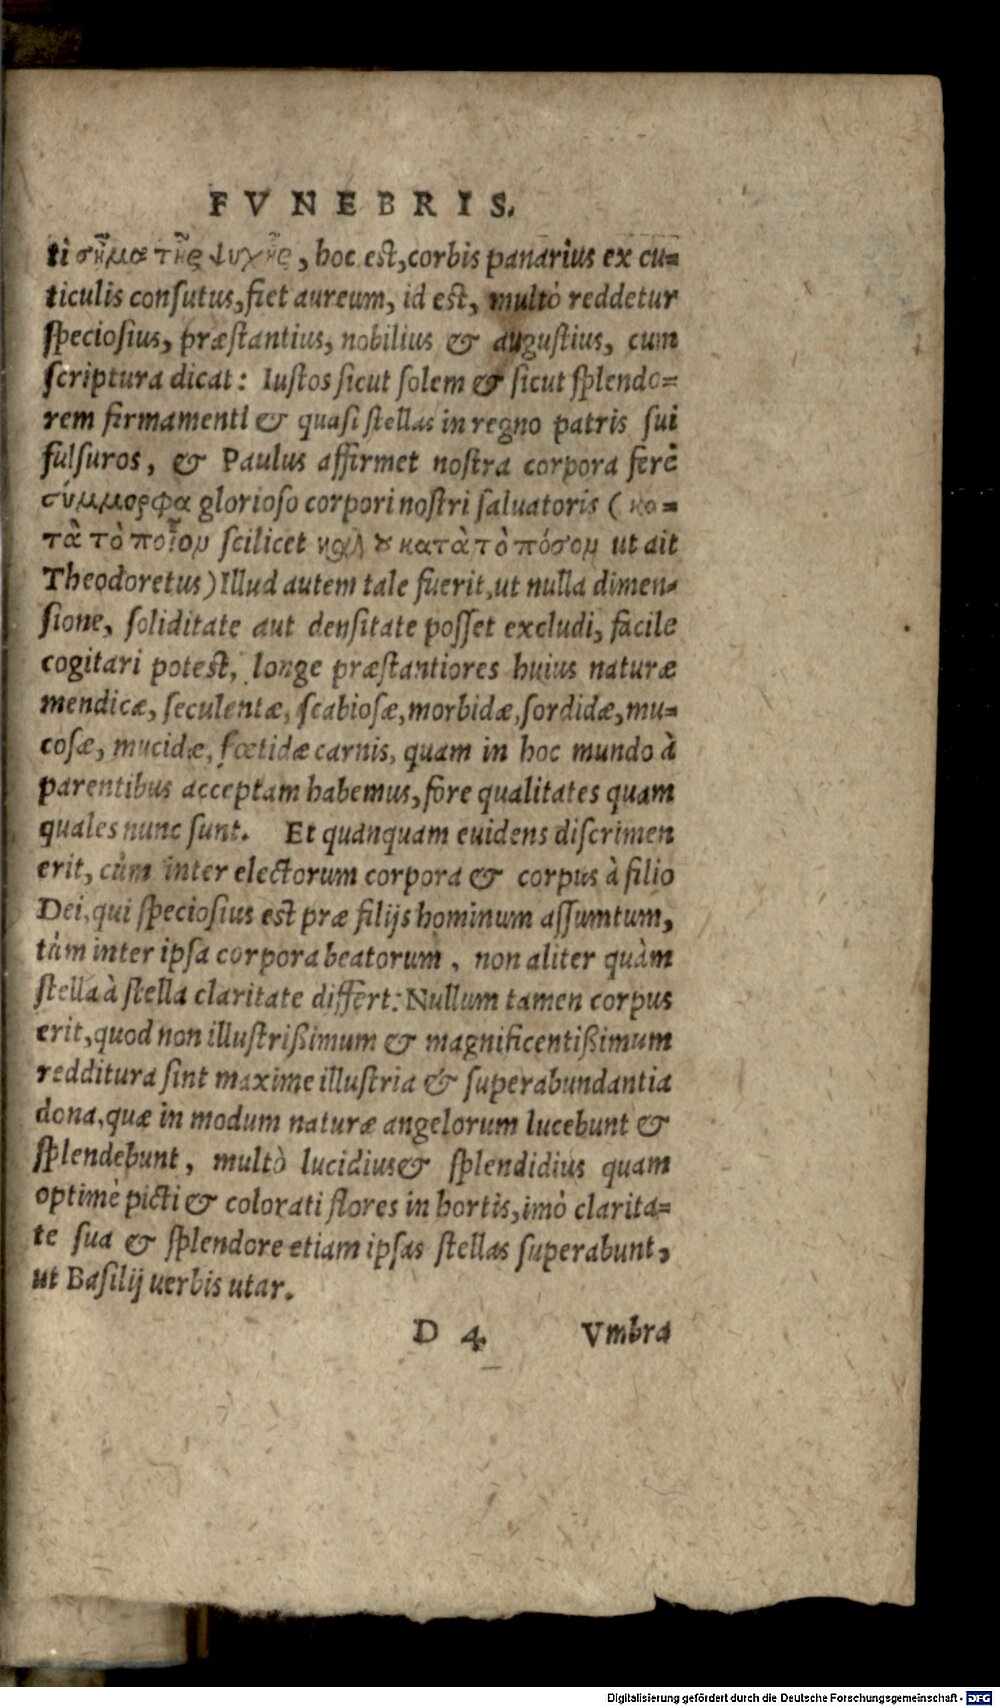 FVNEBRIS.
ti σῆμα τῆς ψυχῆς, hoc est, corbis panarius ex cu=
ticulis consutus, fiet aureum, id est, multò reddetur
speciosius, præstantius, nobilius & augustius, cum
scriptura dicat: Iustos sicut solem & sicut splendo=
rem firmamenti & quasi stellas in regno patris sui
fulsuros, & Paulus affirmet nostra corpora ferè
σύμμορφα glorioso corpori nostri saluatoris (κα=
τὰ τὸ ποῖον scilicet καὶ ȣ κατὰ τὸ πόσον ut ait
Theodoretus) Illud autem tale fuerit, ut nulla dimen=
sione, soliditate aut densitate posset excludi, facile
cogitari potest, longe præstantiores huius naturæ
mendicæ, feculentæ, scabiosæ, morbidæ, sordidæ, mu=
cosæ, mucidæ, fœtidæ carnis, quam in hoc mundo à
parentibus acceptam habemus, fore qualitates quam
quales nunc sunt. Et quanquam euidens discrimen
erit, cùm inter electorum corpora & corpus à filio
Dei, qui speciosius est præ filijs hominum assumtum,
tùm inter ipsa corpora beatorum, non aliter quàm
stella à stella claritate differt: Nullum tamen corpus
erit, quod non illustrißimum & magnificentißimum
redditura sint maxime illustria & superabundantia
dona, quæ in modum naturæ angelorum lucebunt &
splendebunt, multò lucidius & splendidius quam
optimè picti & colorati flores in hortis, imò clarita=
te sua & splendore etiam ipsas stellas superabunt,
ut Basilij uerbis utar.
D 4 Vmbra
Digitalisierung gefördert durch die Deutsche Forschungsgemeinschaft - DFG